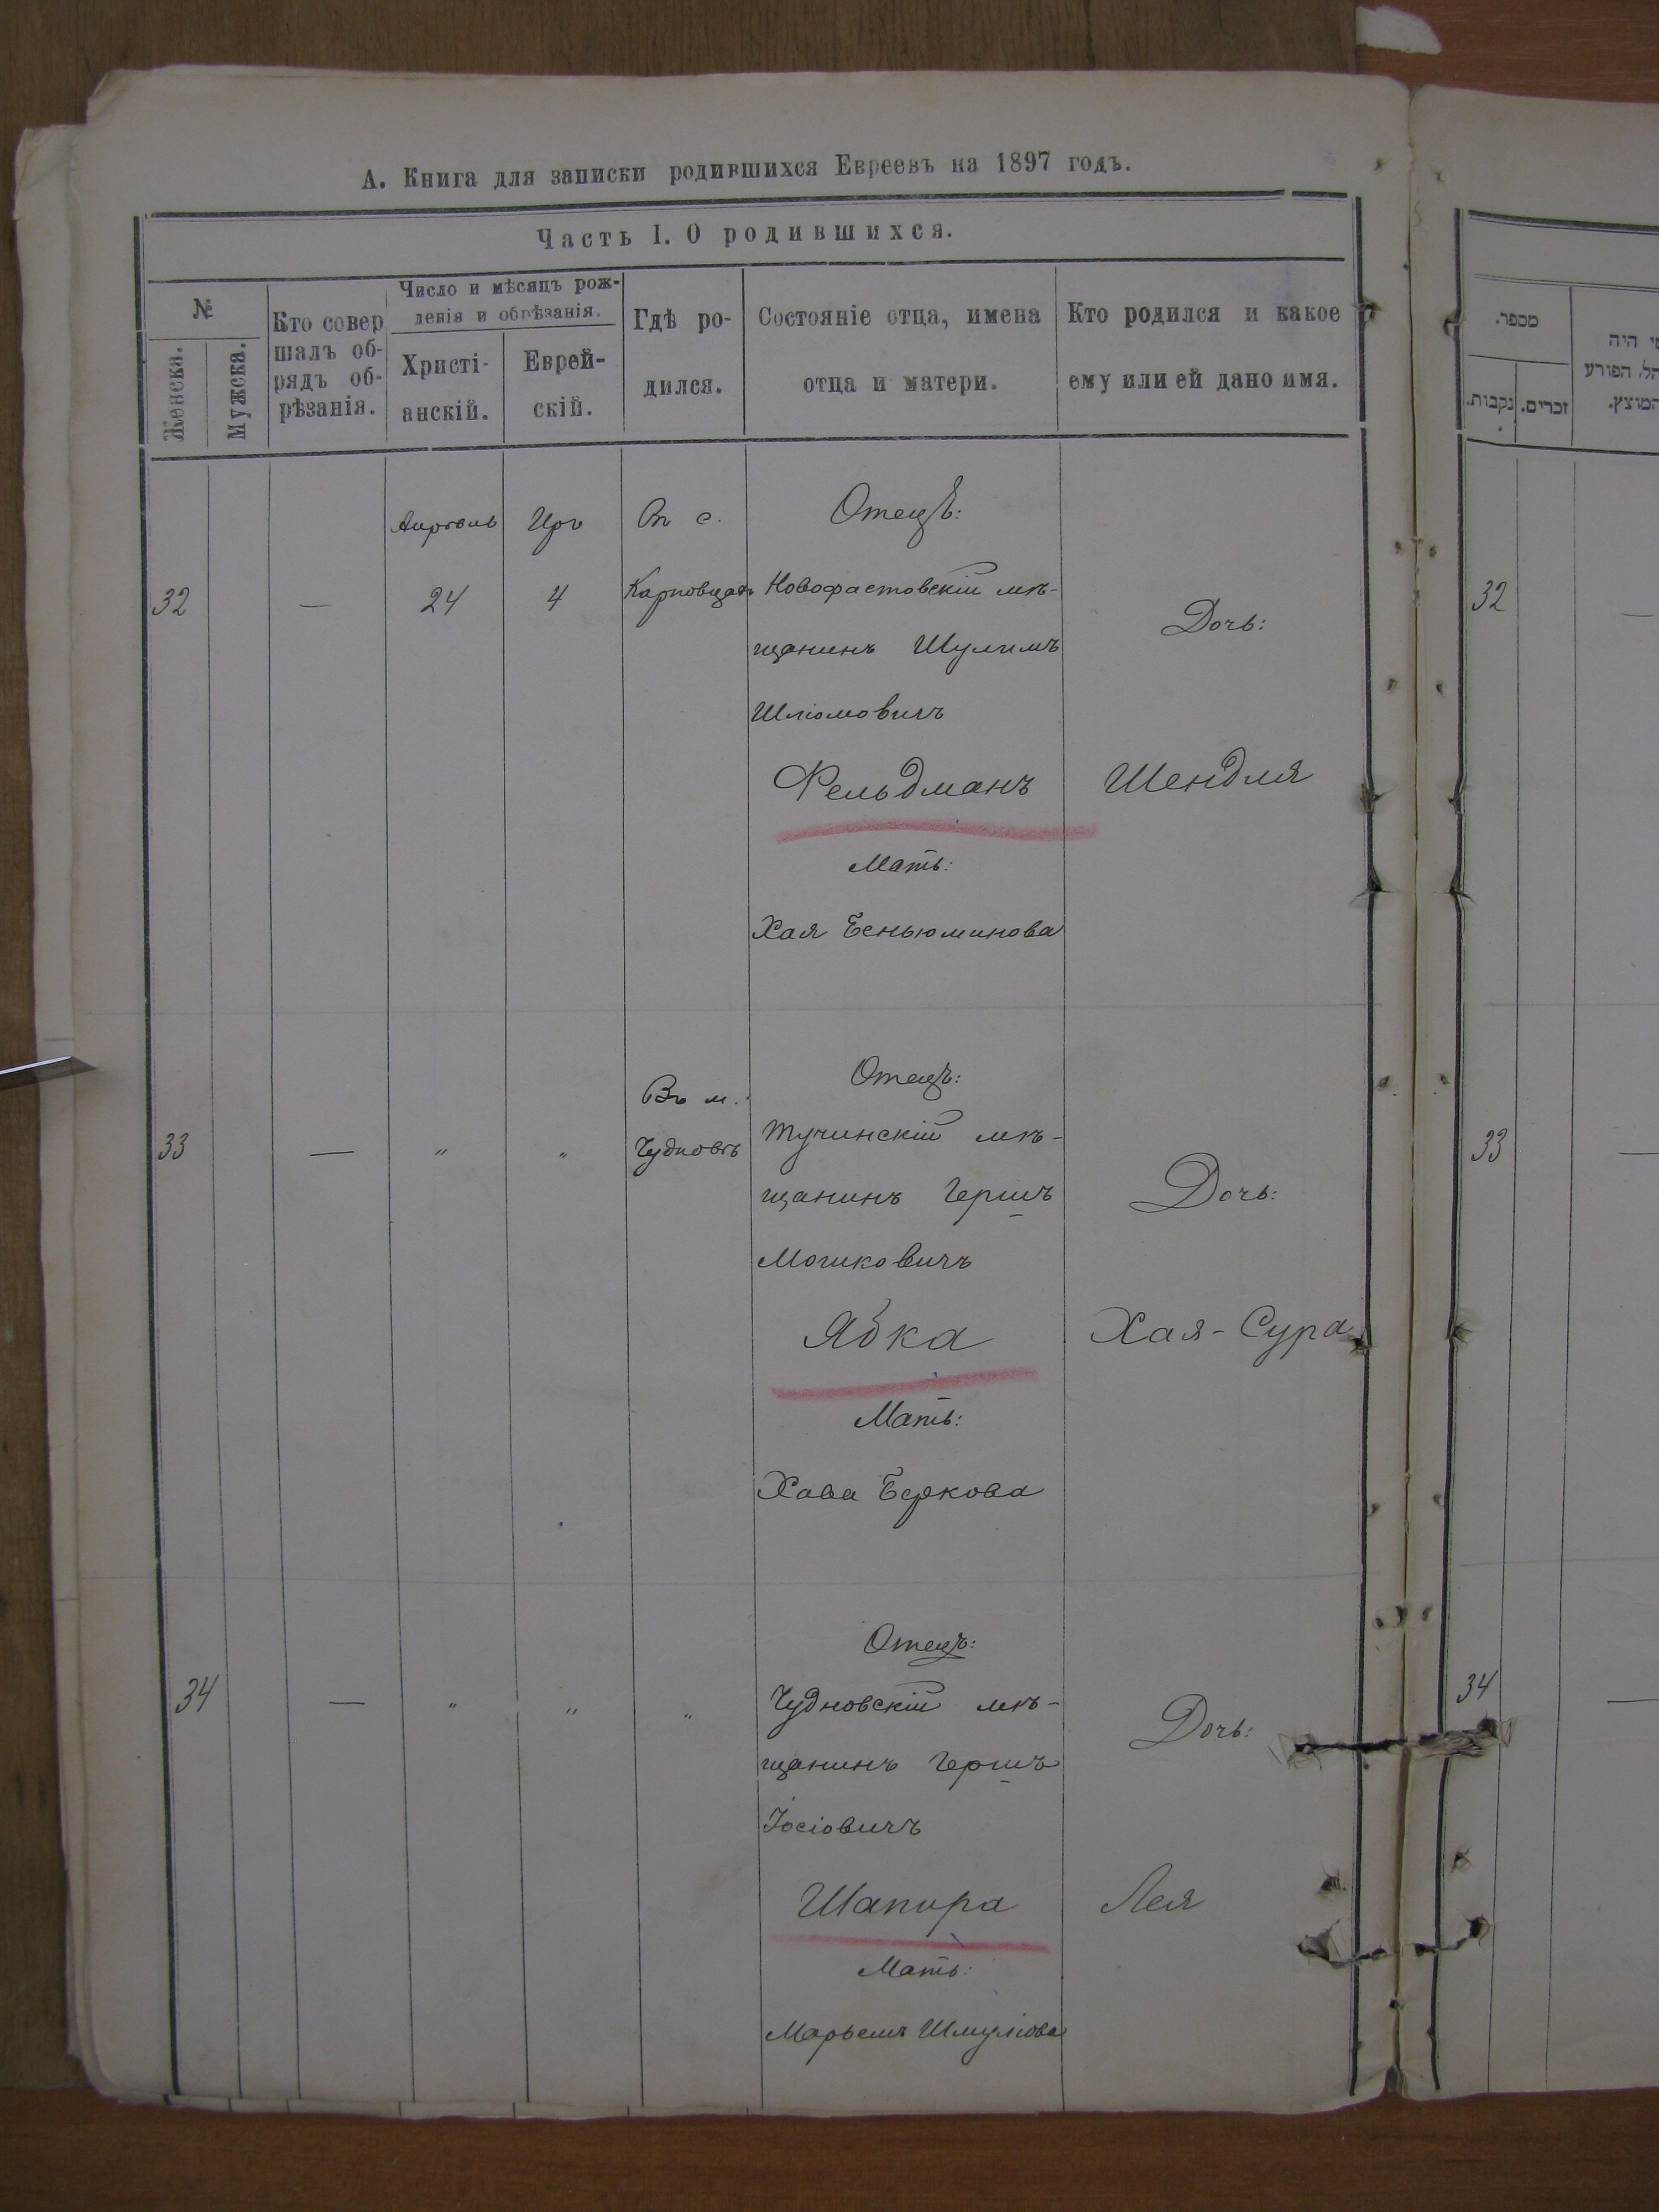 А. Книга для записки родившихся Евреевъ на 1897 годъ.
Часть I. О родившихся.
№
Женска.
Мужска.
Кто совер
шалъ об-
рядъ об-
рѣзанія.
Число и мѣсяцъ рож-
денія и обрѣзанія.
Христі-
анскій.
Еврей-
скій.
Гдѣ ро-
дился.
Состояніе отца, имена
отца и матери.
Кто родился и какое
ему или ей дано имя.
32
—
Апрѣль
24
Іръ
4
Въ с.
Карповцахъ
Отецъ:
Новофастовскій мѣ-
щанинъ Шулимъ
Шліомовичъ
Фельдманъ
Мать:
Хая Беньюминова
Дочь:
Шендля
33
—
"
"
Въ м.
Чудновѣ
Отецъ:
Тучинскій мѣ-
щанинъ Гершъ
Мошковичъ
Ябка
Мать:
Хава Беркова
Дочь:
Хая-Сура
34
—
"
"
"
Отецъ:
Чудновскій мѣ-
щанинъ Гершъ
Іосіовичъ
Шапира
Мать:
Марьемъ Шмуліова
Дочь:
Лея
מספר.
נקבות.
זכרים.
מי היה
המוהל, הפורע
המוצץ.
32
—
33
—
34
—